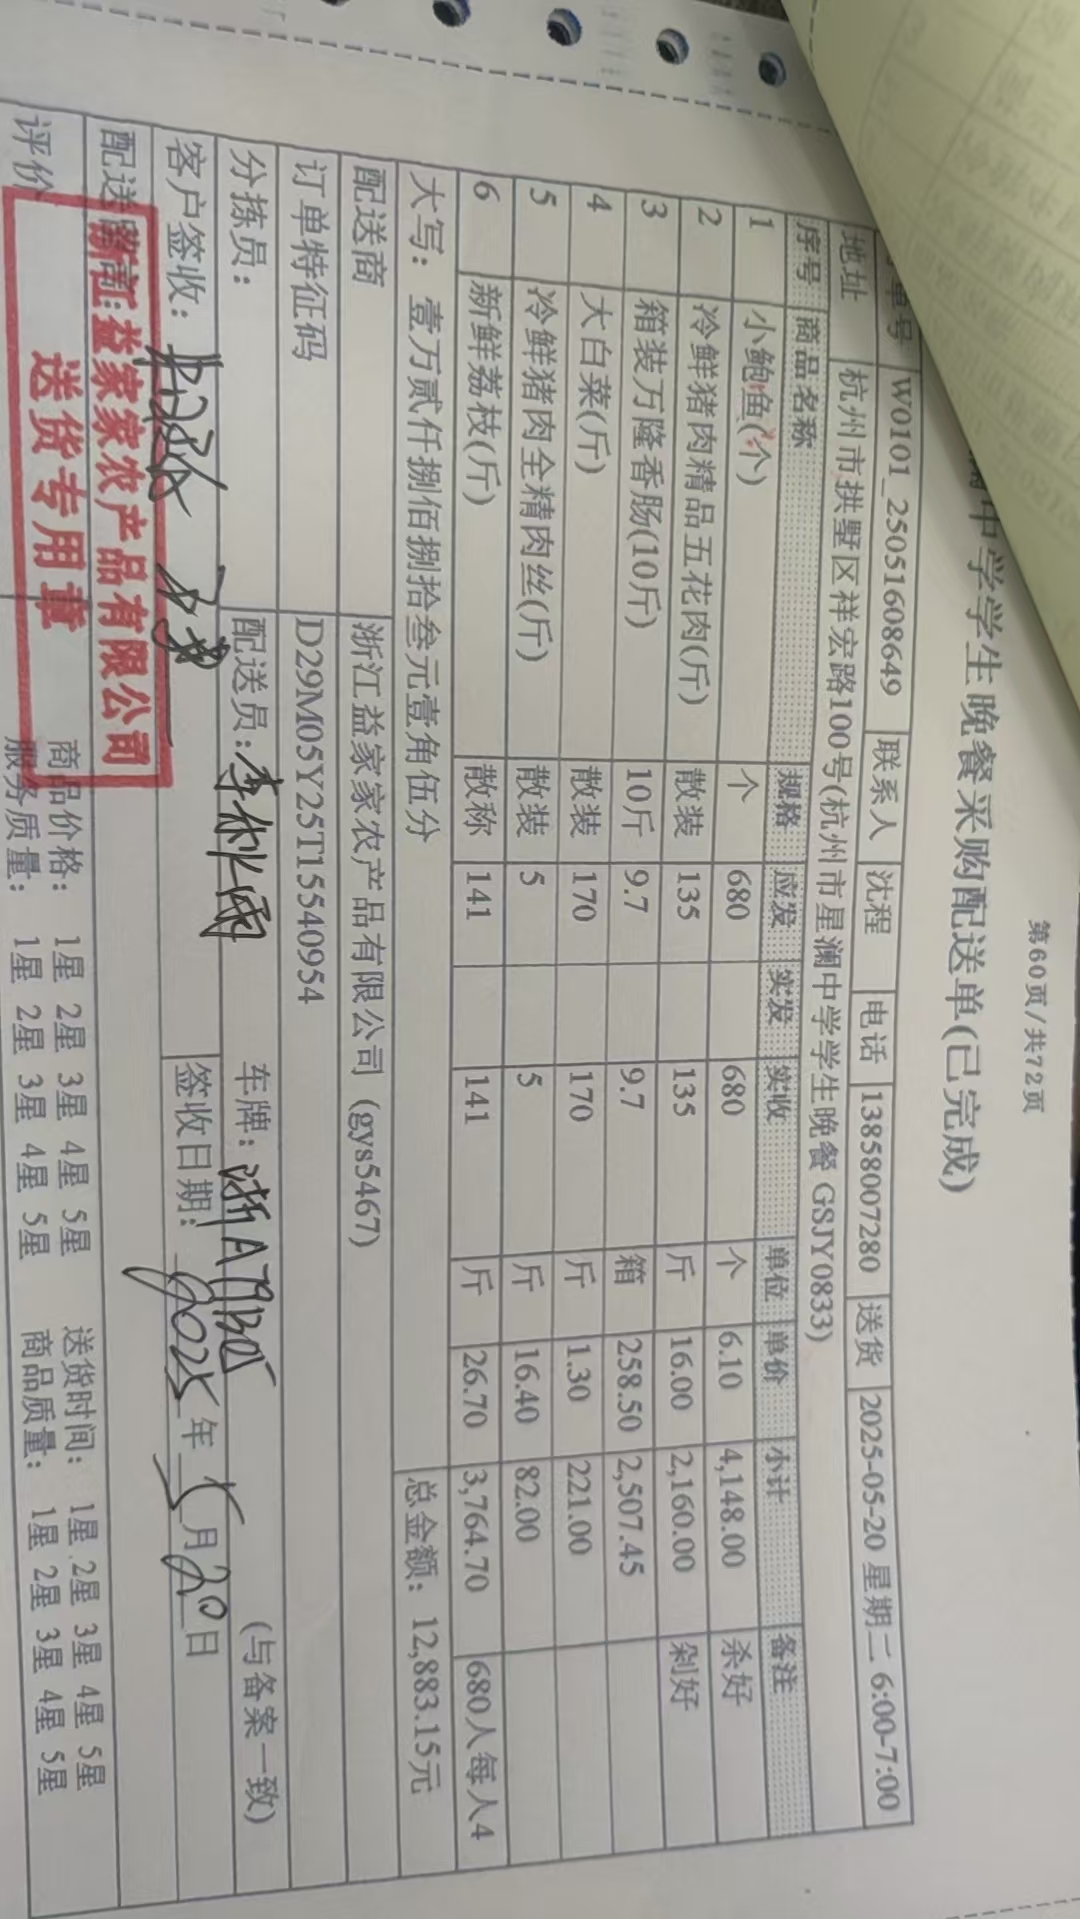 第60页/共72页
中学学生晚餐采购配送单(已完成)
单号 W0101_25051608649 联系人 沈程 电话 13858007280 送货 2025-05-20 星期二 6:00-7:00
地址 杭州市拱墅区祥宏路100号(杭州市星澜中学学生晚餐 GSJY0833)
序号 商品名称 规格 应发 实发 实收 单位 单价 小计 备注
1 小鲍鱼(个) 个 680 680 个 6.10 4,148.00 杀好
2 冷鲜猪肉精品五花肉(斤) 散装 135 135 斤 16.00 2,160.00 剁好
3 箱装万隆香肠(10斤) 10斤 9.7 9.7 箱 258.50 2,507.45
4 大白菜(斤) 散装 170 170 斤 1.30 221.00
5 冷鲜猪肉全精肉丝(斤) 散装 5 5 斤 16.40 82.00
6 新鲜荔枝(斤) 散称 141 141 斤 26.70 3,764.70 680人每人4
大写： 壹万贰仟捌佰捌拾叁元壹角伍分 总金额： 12,883.15元
配送商 浙江益家家农产品有限公司 (gys5467)
订单特征码 D29M05Y25T15540954
分拣员： 配送员： 车牌： 浙A (与备案一致)
客户签收： 签收日期： 2025年5月20日
配送
浙江益家家农产品有限公司
送货专用章
评价 商品价格： 1星 2星 3星 4星 5星 送货时间： 1星 2星 3星 4星 5星
服务质量： 1星 2星 3星 4星 5星 商品质量： 1星 2星 3星 4星 5星